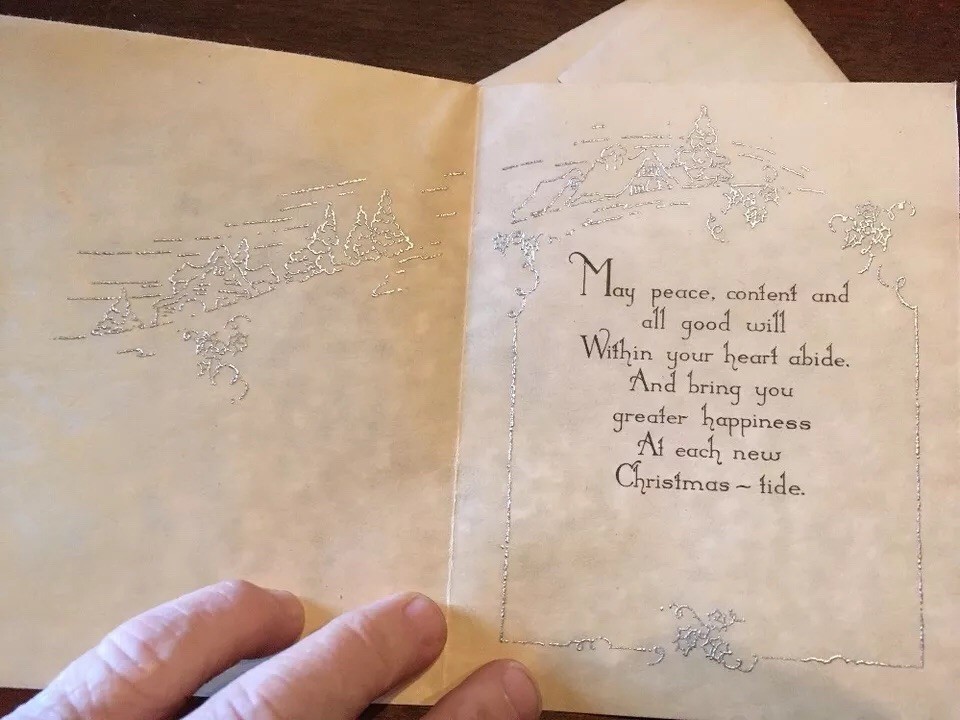 May peace, content and
all good will
Within your heart abide.
And bring you
greater happiness
At each new
Christmas ~ tide.